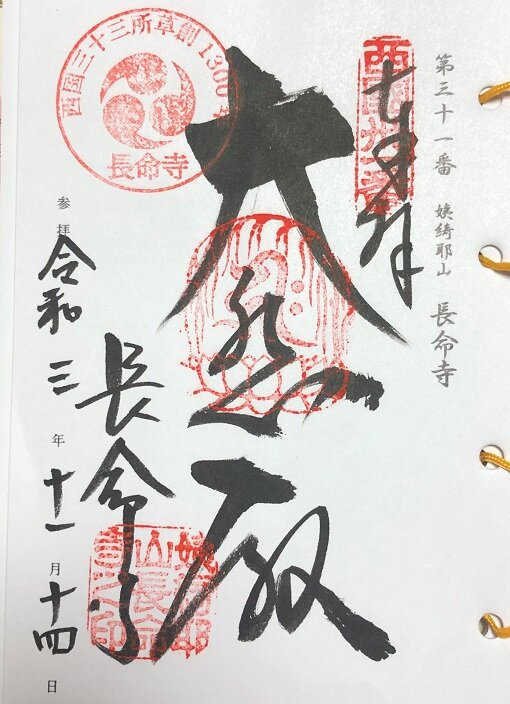 第三十一番 姨綺耶山 長命寺
西國卅一番
大悲殿
西國三十三所草創1300年
長命寺
長命寺
姨綺耶山長命寺之印
参拝 令和三年十一月十四日